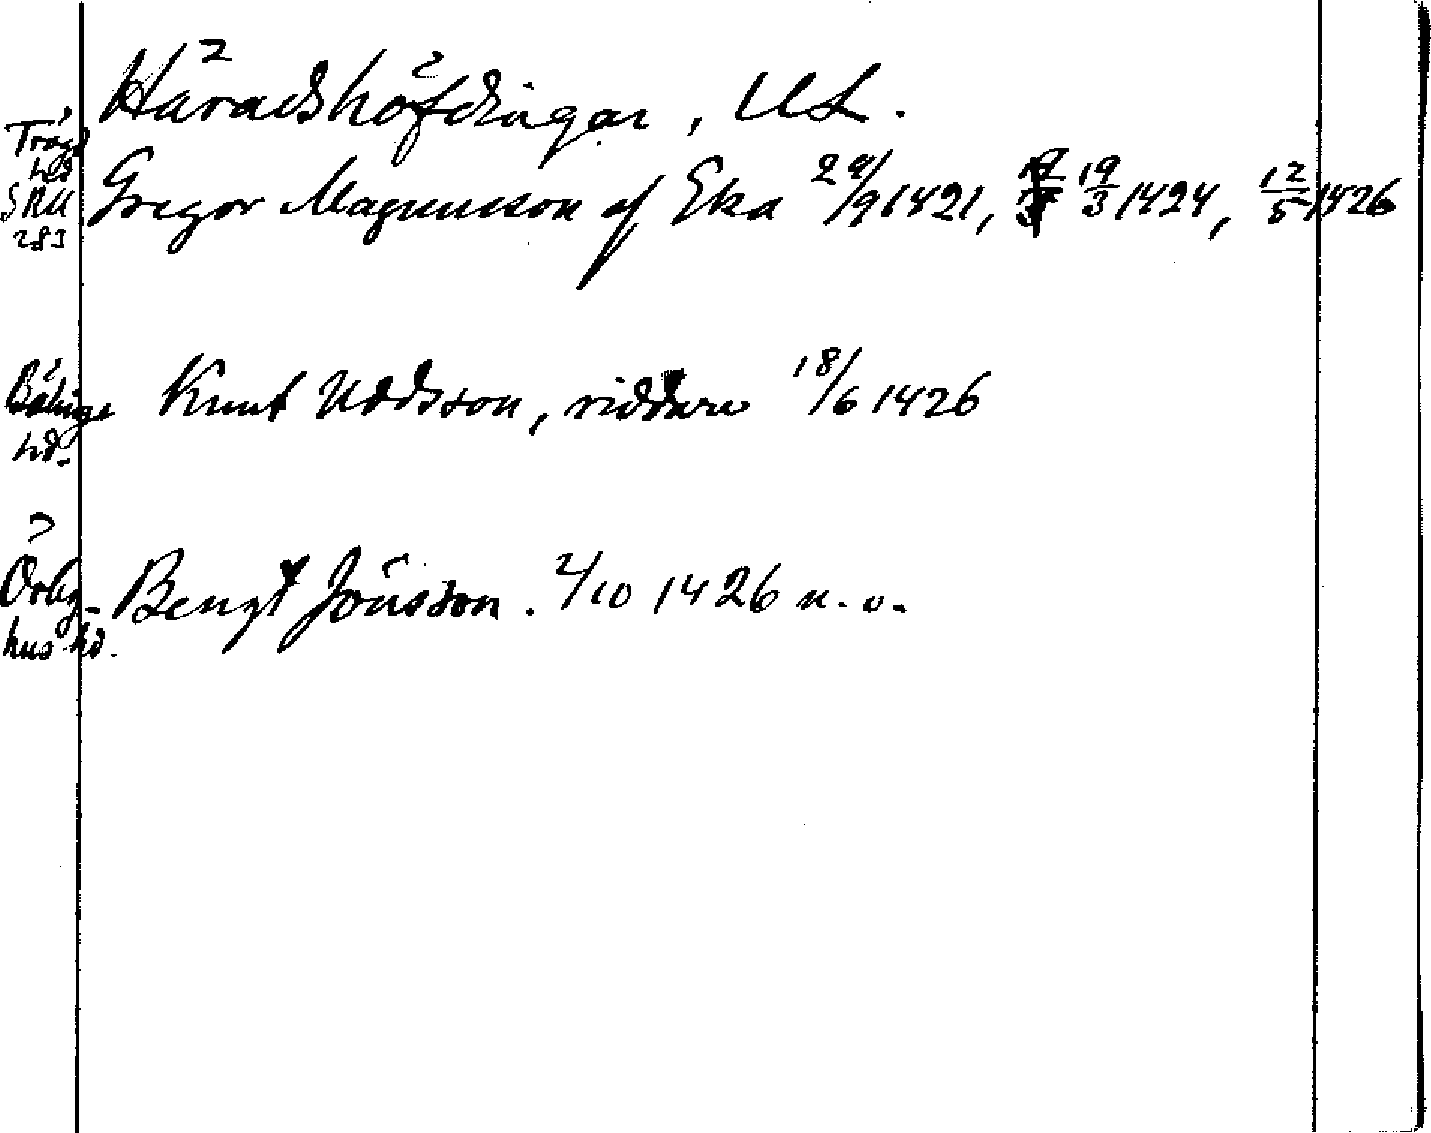 Häradshöfdingar, UL.
Trög
hd
SRU
283
Gregor Magnusson af Eka 29/9 1421, 19/3 1424, 12/5 1426
Bälinge
hd.
Knut Uddsson, riddare 18/6 1426
Örby-
hus hd.
Bengt Jönsson. 2/10 1426 u. o.